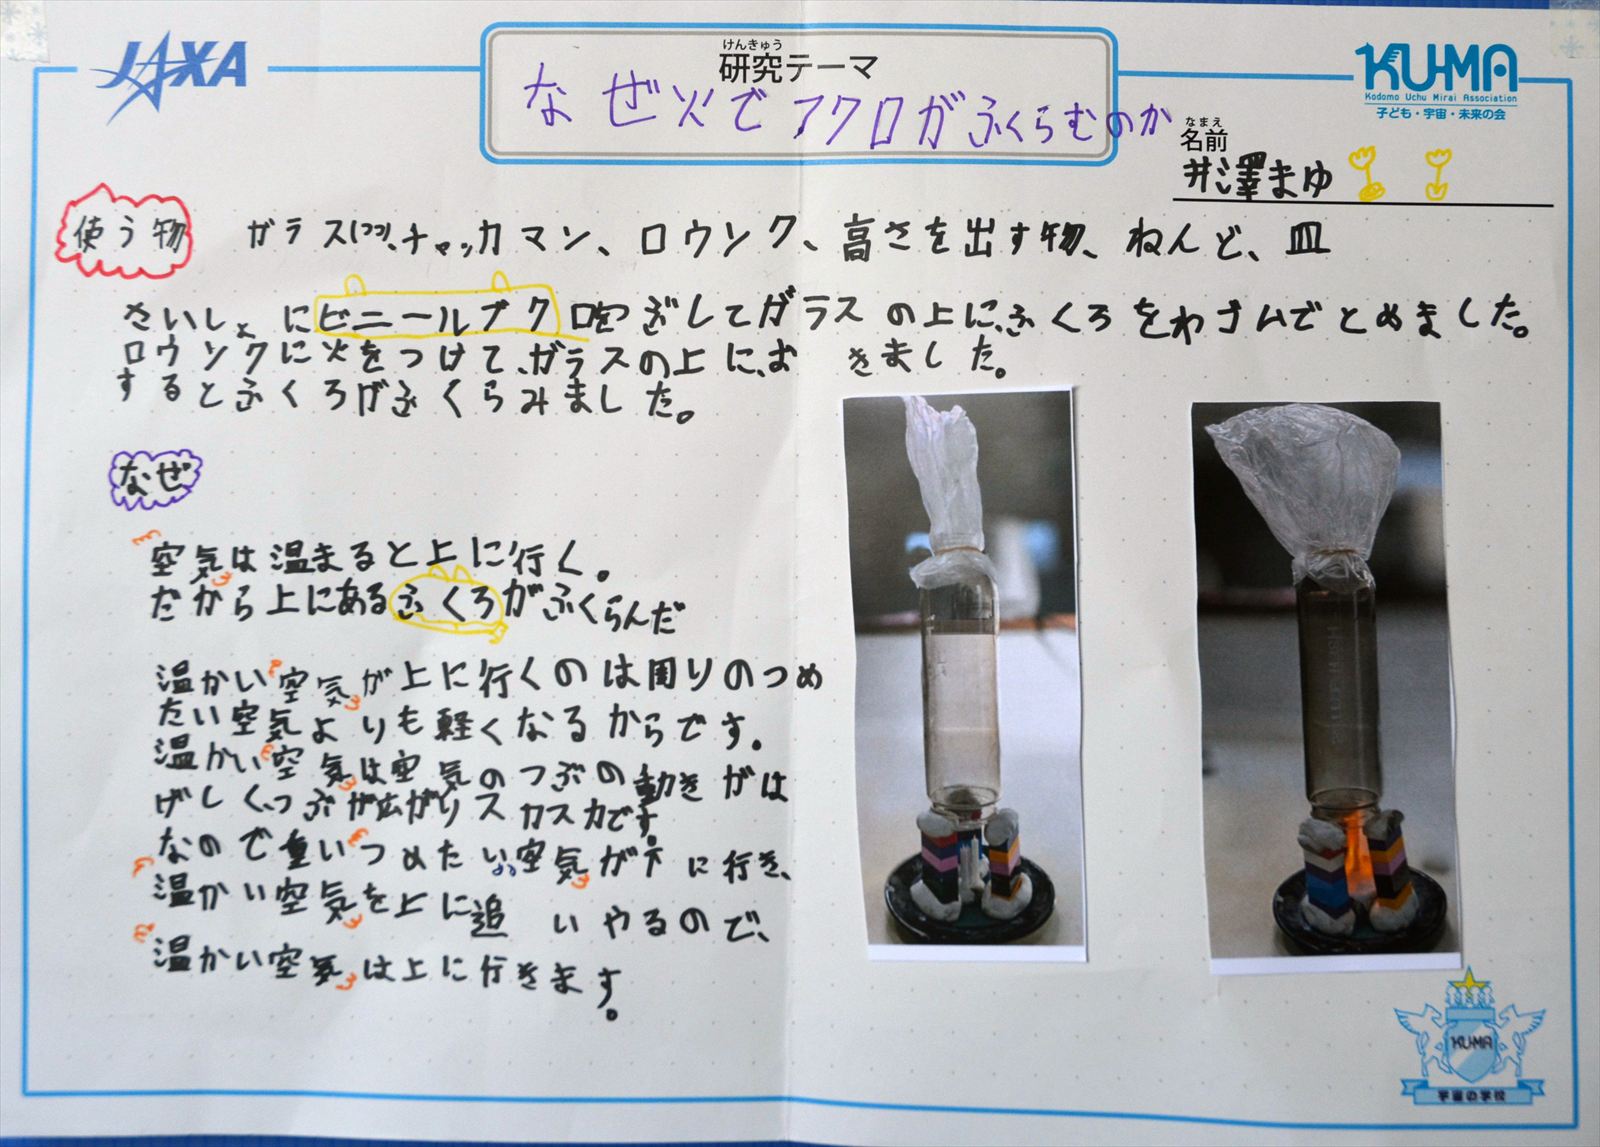 JAXA
けんきゅう
研究テーマ
なぜ火でフクロがふくらむのか
KU-MA
Kodomo Uchu Mirai Association
子ども・宇宙・未来の会
なまえ
名前
井澤まゆ
使う物 ガラス、チャッカマン、ロウソク、高さを出す物、ねんど、皿
さいしょにビニールブクロをぎしてガラスの上に、ふくろをわゴムでとめました。
ロウソクに火をつけて、ガラスの上に、おきました。
するとふくろがふくらみました。
なぜ
空気は温まると上に行く。
だから上にあるふくろがふくらんだ
温かい空気が上に行くのは周りのつめ
たい空気よりも軽くなるからです。
温かい空気は空気のつぶの動きがは
げしく、つぶが広がりスカスカです。
なので重いつめたい空気が下に行き、
温かい空気を上に追いやるので、
温かい空気は上に行きます。
KU-MA
宇宙の学校